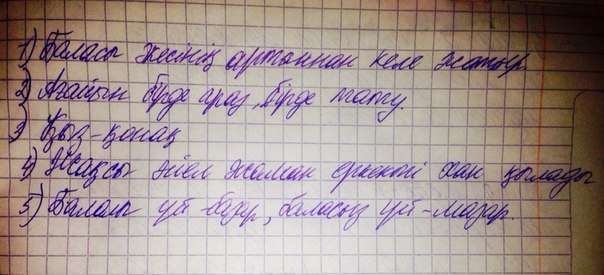 1) Баласы әкесінің артоннан келе жатыр.
2) Ағайын бірде араз, бірде тату.
3) Қыз-қонақ
4) Жақсы әйел жаман еркекті хан қылады
5) Балалы үй-базар, баласыз үй-мазар.